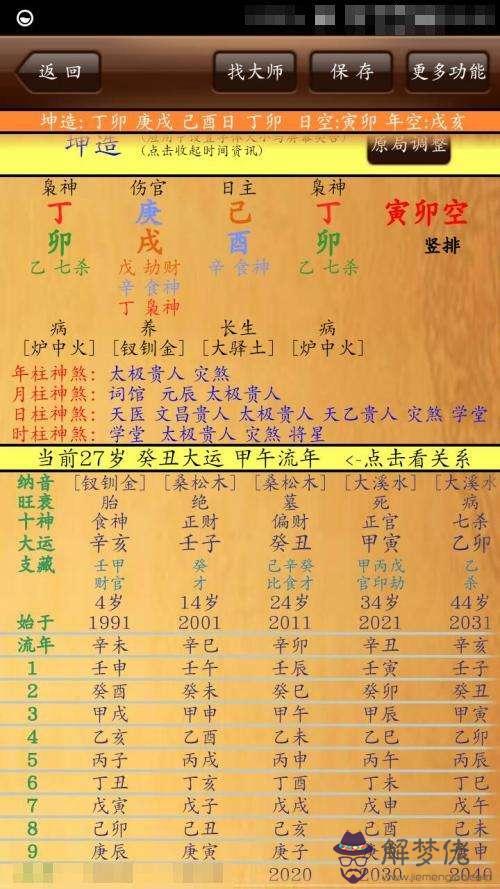 返回 找大师 保存 更多功能
坤造: 丁卯 庚戌 己酉日 丁卯 日空:寅卯 年空:戌亥
坤造
(点击收起时间资讯)
原局调整
枭神 伤官 日主 枭神
丁 庚 己 丁 寅卯空
卯 戌 酉 卯 竖排
乙 七杀 戊 劫财 辛 食神 乙 七杀
辛 食神
丁 枭神
病 养 长生 病
[炉中火] [钗钏金] [大驿土] [炉中火]
年柱神煞: 太极贵人 灾煞
月柱神煞: 词馆 元辰 太极贵人
日柱神煞: 天医 文昌贵人 太极贵人 天乙贵人 灾煞 学堂
时柱神煞: 学堂 太极贵人 灾煞 将星
当前27岁 癸丑大运 甲午流年 <-点击看关系
纳音 [钗钏金] [桑松木] [桑松木] [大溪水] [大溪水
旺衰 胎 绝 墓 死 病
十神 食神 正财 偏财 正官 七杀
大运 辛亥 壬子 癸丑 甲寅 乙卯
支藏 壬甲 癸 己辛癸 甲丙戊 乙
财官 才 比食才 官印劫 杀
4岁 14岁 24岁 34岁 44岁
始于 1991 2001 2011 2021 2031
流年 辛未 辛巳 辛卯 辛丑 辛亥
1 壬申 壬午 壬辰 壬寅 壬子
2 癸酉 癸未 癸巳 癸卯 癸丑
3 甲戌 甲申 甲午 甲辰 甲寅
4 乙亥 乙酉 乙未 乙巳 乙卯
5 丙子 丙戌 丙申 丙午 丙辰
6 丁丑 丁亥 丁酉 丁未 丁巳
7 戊寅 戊子 戊戌 戊申 戊午
8 己卯 己丑 己亥 己酉 己未
9 庚辰 庚寅 庚子 庚戌 庚申
2020 2030 2040
解梦佬
www.jiemenglao.com